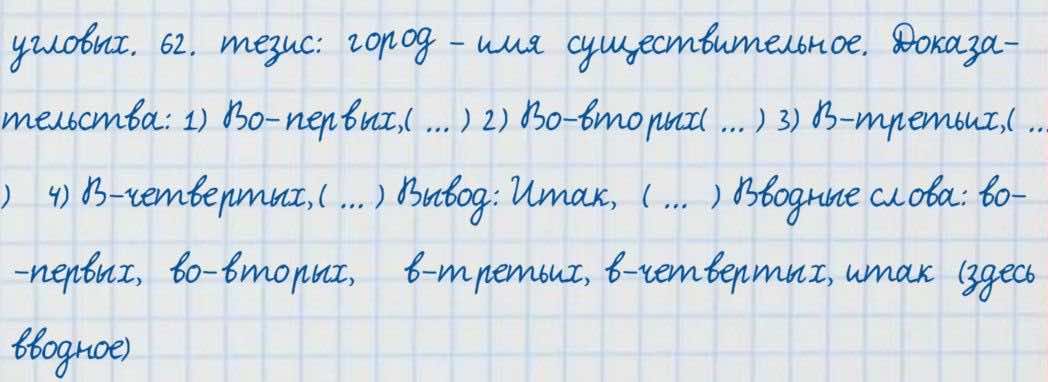 угловых. 62. тезис: город - имя существительное. Доказа-
тельства: 1) Во-первых,( ... ) 2) Во-вторых( ... ) 3) В-третьих,( ...
) 4) В-четвертых,( ... ) Вывод: Итак, ( ... ) Вводные слова: во-
-первых, во-вторых, в-третьих, в-четвертых, итак (здесь
вводное)